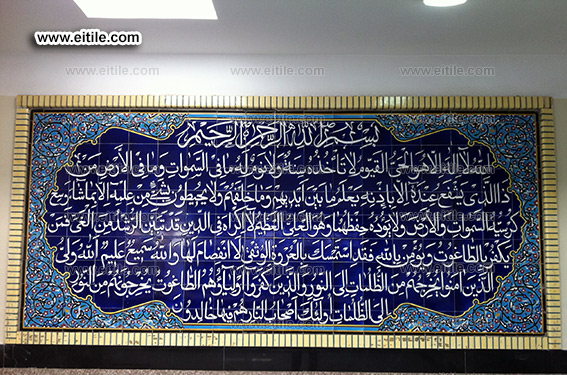 www.eitile.com
بسم الله الرحمن الرحيم
الله لا اله الا هو الحي القيوم لا تأخذه سنة ولا نوم له ما في السموات وما في الأرض من
ذا الذي يشفع عنده الا باذنه يعلم ما بين ايديهم وما خلفهم ولا يحيطون بشئ من علمه الا بما شاء وسع
كرسيه السموات والأرض ولا يؤده حفظهما وهو العلي العظيم لا اكراه في الدين قد تبين الرشد من الغي فمن
يكفر بالطاغوت ويؤمن بالله فقد استمسك بالعروة الوثقى لا انفصام لها والله سميع عليم الله ولي
الذين آمنوا يخرجهم من الظلمات الى النور والذين كفروا اولياؤهم الطاغوت يخرجونهم من النور
الى الظلمات اولئك اصحاب النار هم فيها خالدون